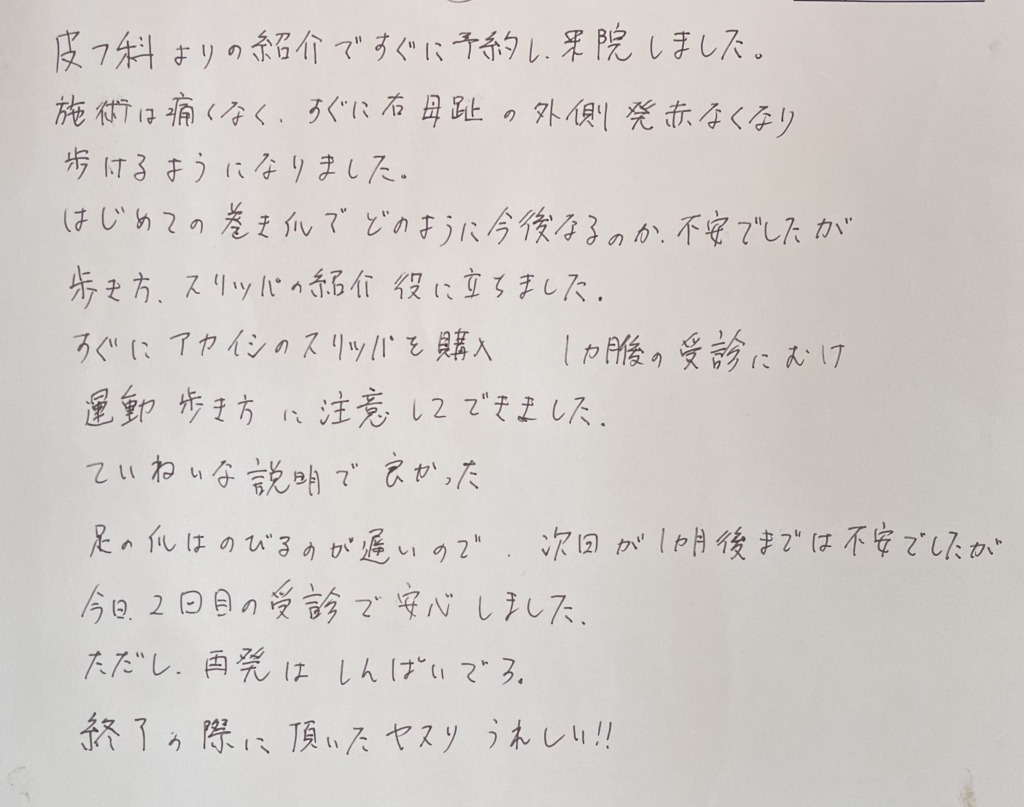 皮フ科よりの紹介ですぐに予約し、来院しました。
施術は痛くなく、すぐに右母趾の外側発赤なくなり
歩けるようになりました。
はじめての巻き爪でどのように今後なるのか、不安でしたが
歩き方、スリッパの紹介役に立ちました。
すぐにアカイシのスリッパを購入 1ヵ月後の受診にむけ
運動 歩き方に注意してできました。
ていねいな説明で良かった
足の爪はのびるのが遅いので、次回が1ヵ月後までは不安でしたが
今日、2回目の受診で安心しました。
ただし、再発はしんぱいでる。
終了の際に頂いたヤスリうれしい!!